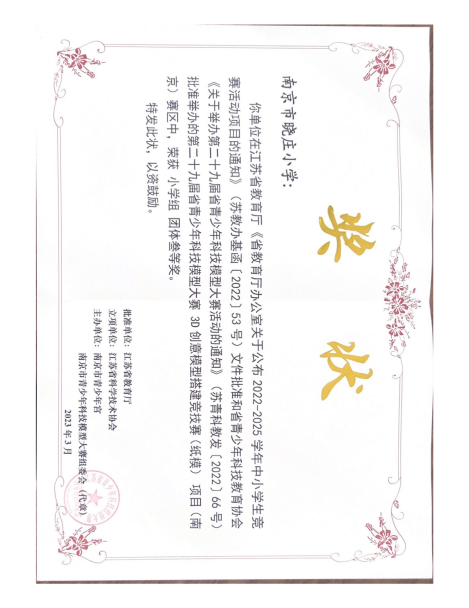 奖状
南京市晓庄小学：
你单位在江苏省教育厅《省教育厅办公室关于公布 2022-2025 学年中小学生竞
赛活动项目的通知》（苏教办基函〔2022〕53 号）文件批准和省青少年科技教育协会
《关于举办第二十九届省青少年科技模型大赛活动的通知》（苏青科教发〔2022〕66 号）
批准举办的第二十九届省青少年科技模型大赛 3D 创意模型搭建竞技赛（纸模）项目（南
京）赛区中，荣获 小学组 团体叁等奖。
特发此状，以资鼓励。
批准单位：江苏省教育厅
立项单位：江苏省科学技术协会
主办单位：南京市青少年宫
南京市青少年科技模型大赛组委会（代章）
2023 年 3 月